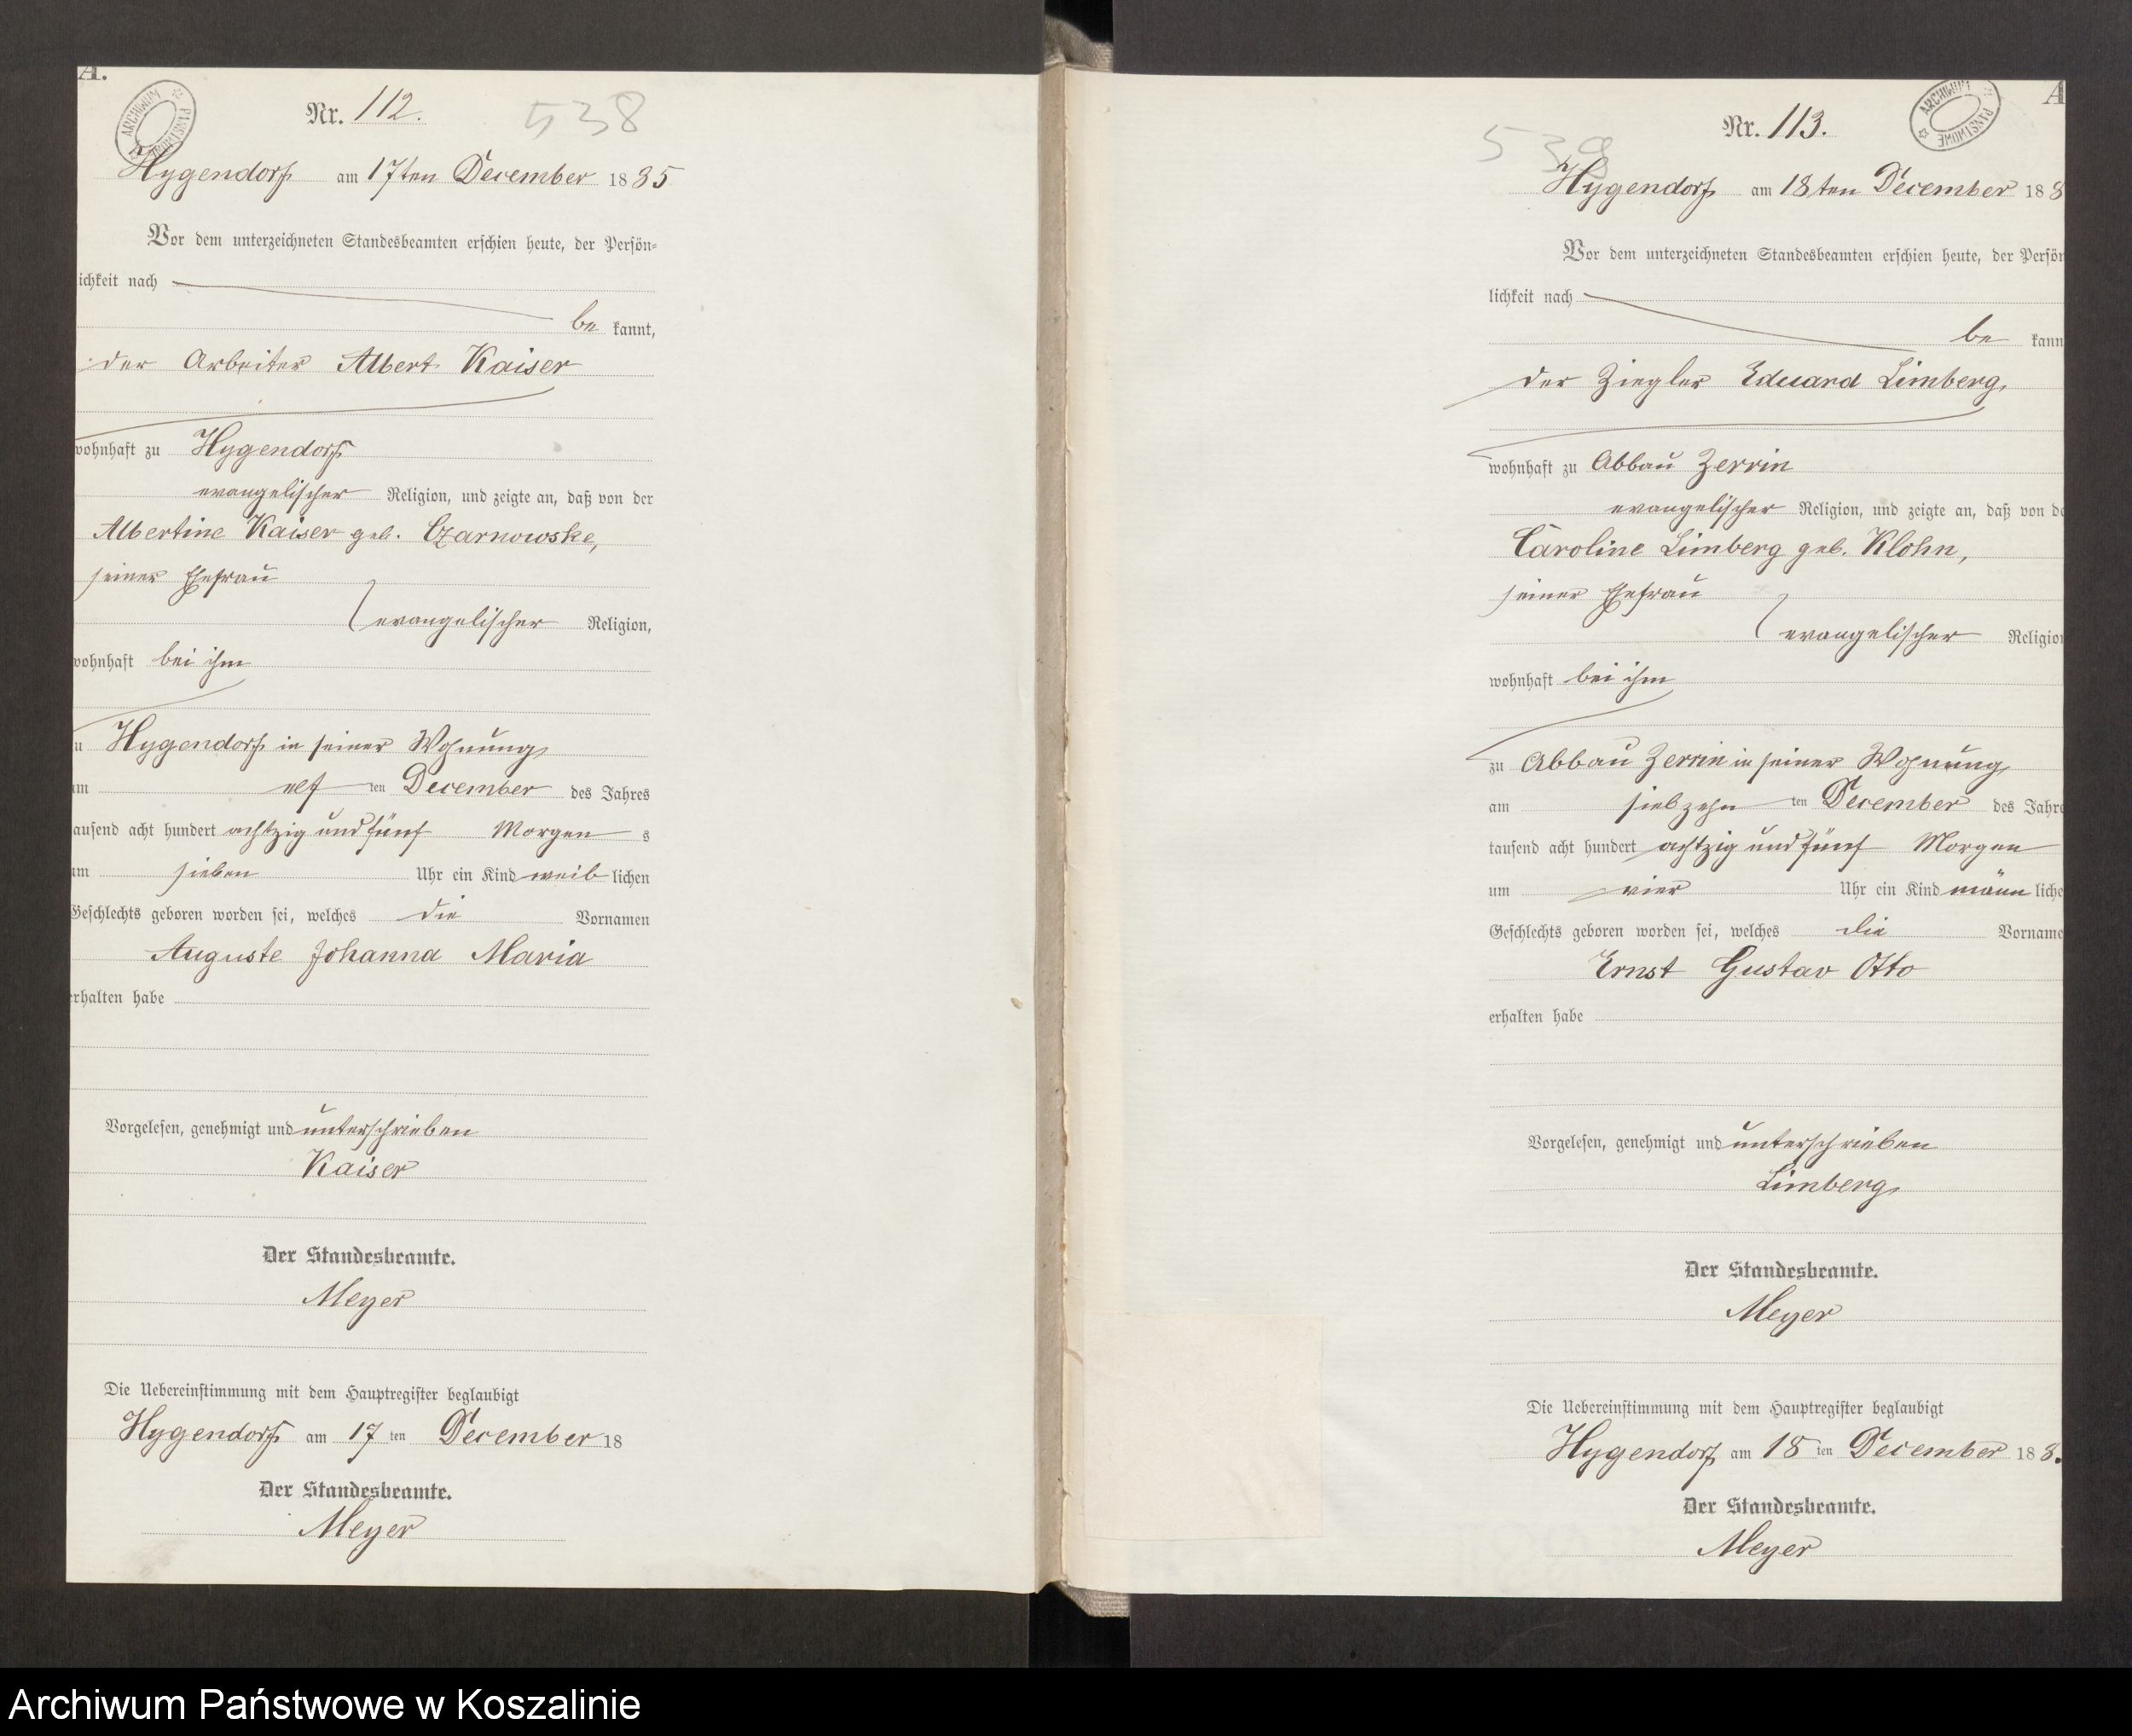 A.
ARCHIWUM PAŃSTWOWE
Nr. 112.
538
Hygendorf am 17ten December 1885
Vor dem unterzeichneten Standesbeamten erschien heute, der Persön-
ichkeit nach
be kannt,
der Arbeiter Albert Kaiser
wohnhaft zu Hygendorf
evangelischer Religion, und zeigte an, daß von der
Albertine Kaiser geb. Czarnowske,
seiner Ehefrau
evangelischer Religion,
wohnhaft bei ihm
u Hygendorf in seiner Wohnung
am elf ten December des Jahres
ausend acht hundert achtzig und fünf Morgen s
um sieben Uhr ein Kind weib lichen
Geschlechts geboren worden sei, welches die Vornamen
Auguste Johanna Maria
erhalten habe
Vorgelesen, genehmigt und unterschrieben
Kaiser
Der Standesbeamte.
Meyer
Die Uebereinstimmung mit dem Hauptregister beglaubigt
Hygendorf am 17 ten December 18
Der Standesbeamte.
Meyer
A
ARCHIWUM PAŃSTWOWE
Nr. 113.
539
Hygendorf am 18ten December 188
Vor dem unterzeichneten Standesbeamten erschien heute, der Persön
lichkeit nach
be kann
der Ziegler Eduard Limberg,
wohnhaft zu Abbau Zerrin
evangelischer Religion, und zeigte an, daß von de
Caroline Limberg geb. Klohn,
seiner Ehefrau
evangelischer Religion
wohnhaft bei ihm
zu Abbau Zerrin in seiner Wohnung
am siebzehn ten December des Jahre
tausend acht hundert achtzig und fünf Morgen
um vier Uhr ein Kind männ liche
Geschlechts geboren worden sei, welches die Vorname
Ernst Gustav Otto
erhalten habe
Vorgelesen, genehmigt und unterschrieben
Limberg
Der Standesbeamte.
Meyer
Die Uebereinstimmung mit dem Hauptregister beglaubigt
Hygendorf am 18 ten December 188.
Der Standesbeamte.
Meyer
Archiwum Państwowe w Koszalinie